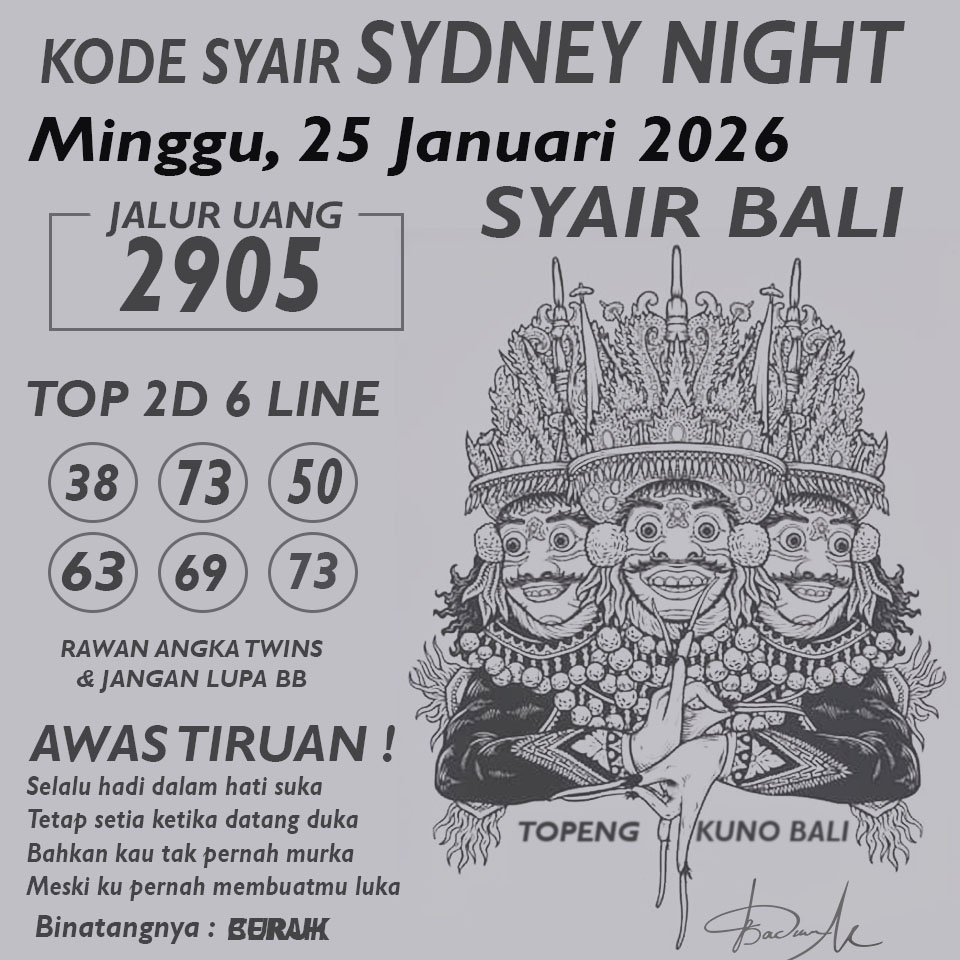 KODE SYAIR SYDNEY NIGHT
Minggu, 25 Januari 2026
SYAIR BALI
JALUR UANG
2905
TOP 2D 6 LINE
38 73 50
63 69 73
RAWAN ANGKA TWINS
& JANGAN LUPA BB
AWAS TIRUAN !
Selalu hadi dalam hati suka
Tetap setia ketika datang duka
Bahkan kau tak pernah murka
Meski ku pernah membuatmu luka
Binatangnya :
TOPENG KUNO BALI